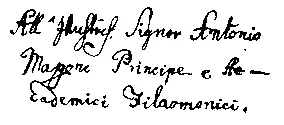 All' Illustriss: Signor Antonio
Mazzoni Principe e Ac—
cademici Filarmonici.